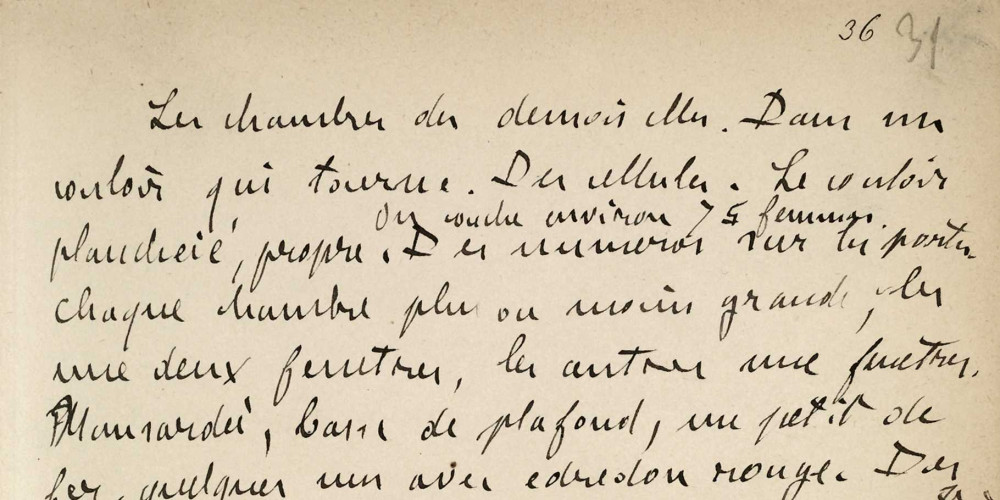 36 31
Les chambres des demoiselles. Dans un
couloir qui tourne. Des cellules. Le couloir
On couche environ 75 femmes.
planchéié, propre. Des numéros sur les portes.
Chaque chambre plus ou moins grande, les
une deux fenêtres, les autres une fenêtre.
Mansardée, basse de plafond, un petit de
fer, quelques uns avec edredon rouge. Des